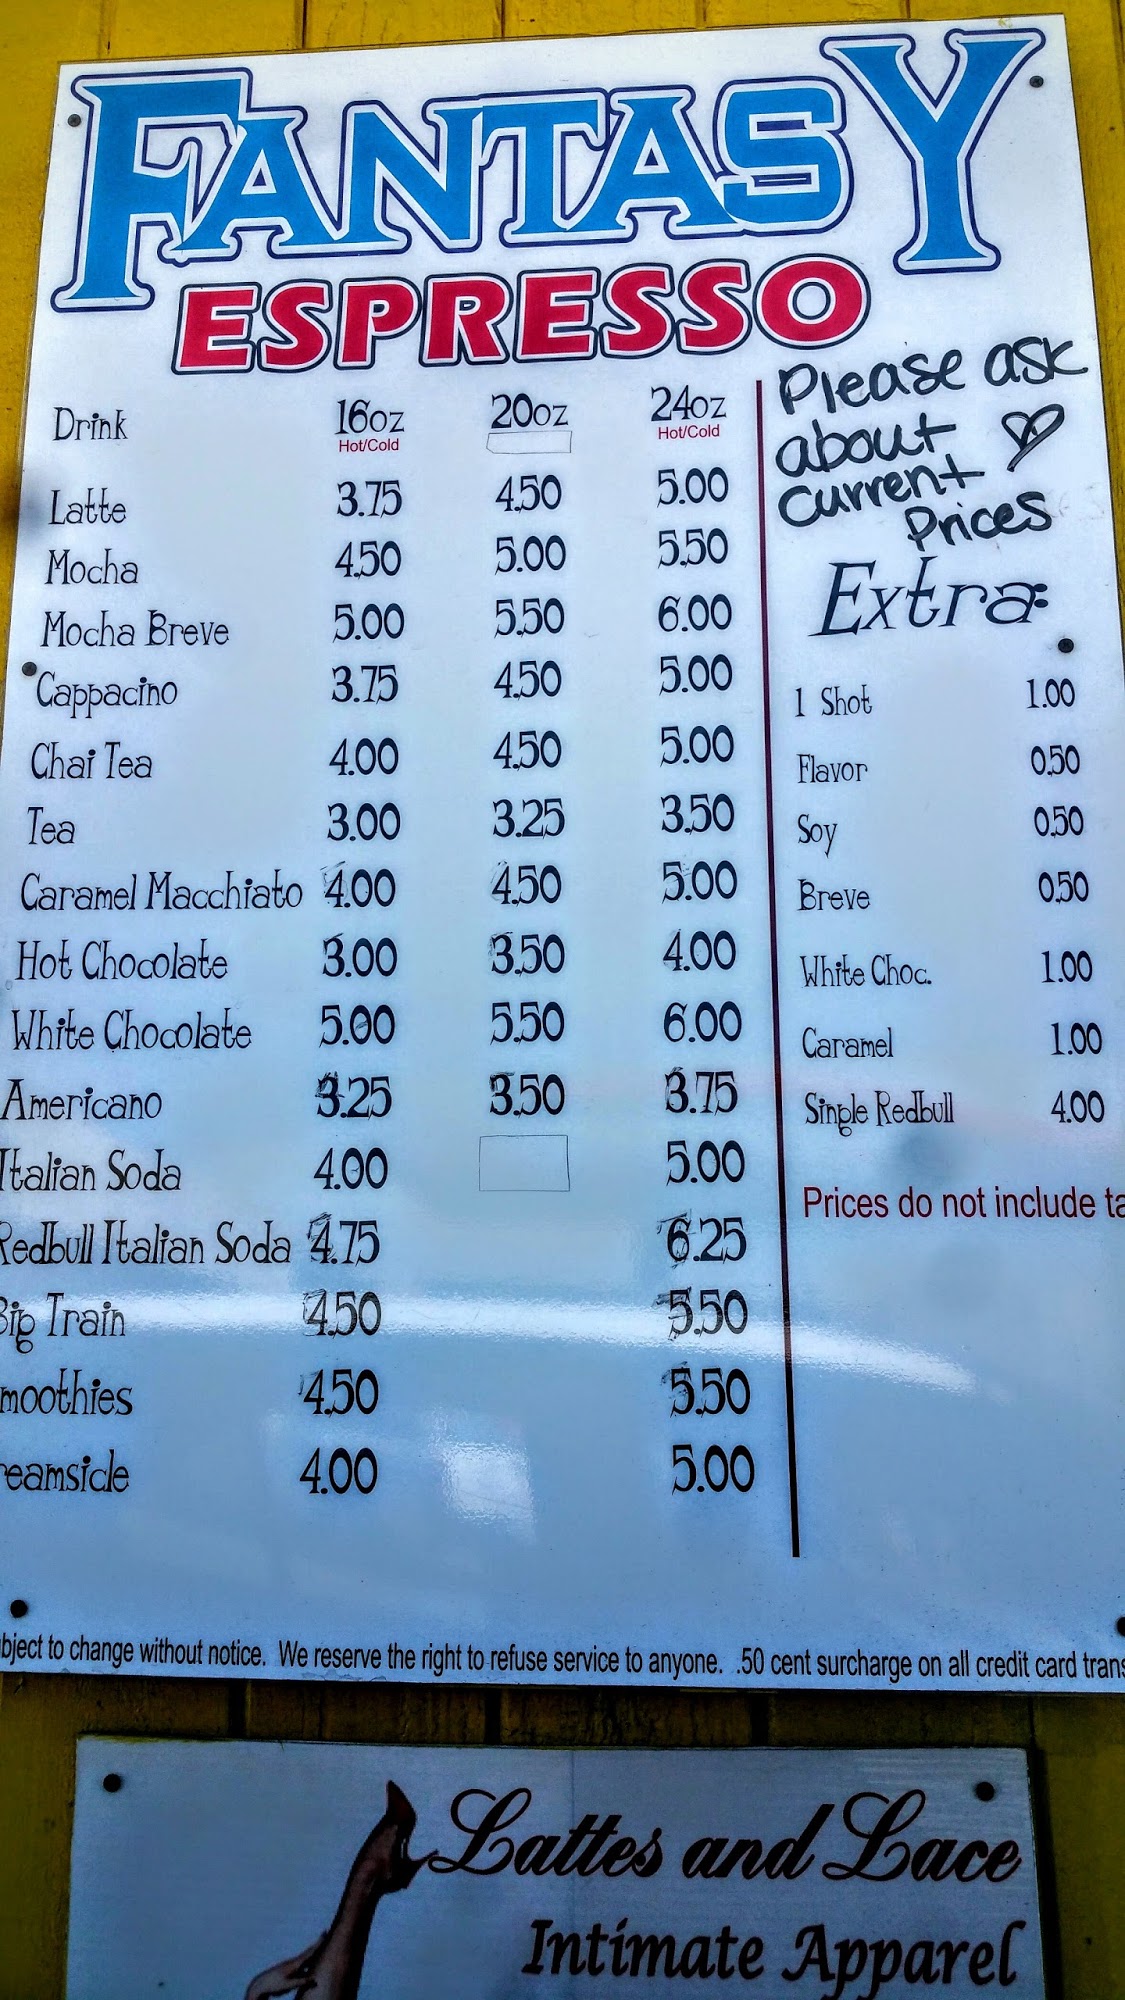 FANTASY
ESPRESSO
Please ask
about
Current
Prices
Drink 16oz 20oz 24oz
Hot/Cold Hot/Cold
Latte 3.75 4.50 5.00
Mocha 4.50 5.00 5.50
Mocha Breve 5.00 5.50 6.00
Cappacino 3.75 4.50 5.00
Chai Tea 4.00 4.50 5.00
Tea 3.00 3.25 3.50
Caramel Macchiato 4.00 4.50 5.00
Hot Chocolate 3.00 3.50 4.00
White Chocolate 5.00 5.50 6.00
Americano 3.25 3.50 3.75
Italian Soda 4.00 5.00
Redbull Italian Soda 4.75 6.25
Big Train 4.50 5.50
moothies 4.50 5.50
reamsicle 4.00 5.00
Extra:
1 Shot 1.00
Flavor 0.50
Soy 0.50
Breve 0.50
White Choc. 1.00
Caramel 1.00
Single Redbull 4.00
Prices do not include ta
bject to change without notice. We reserve the right to refuse service to anyone. .50 cent surcharge on all credit card trans
Lattes and Lace
Intimate Apparel